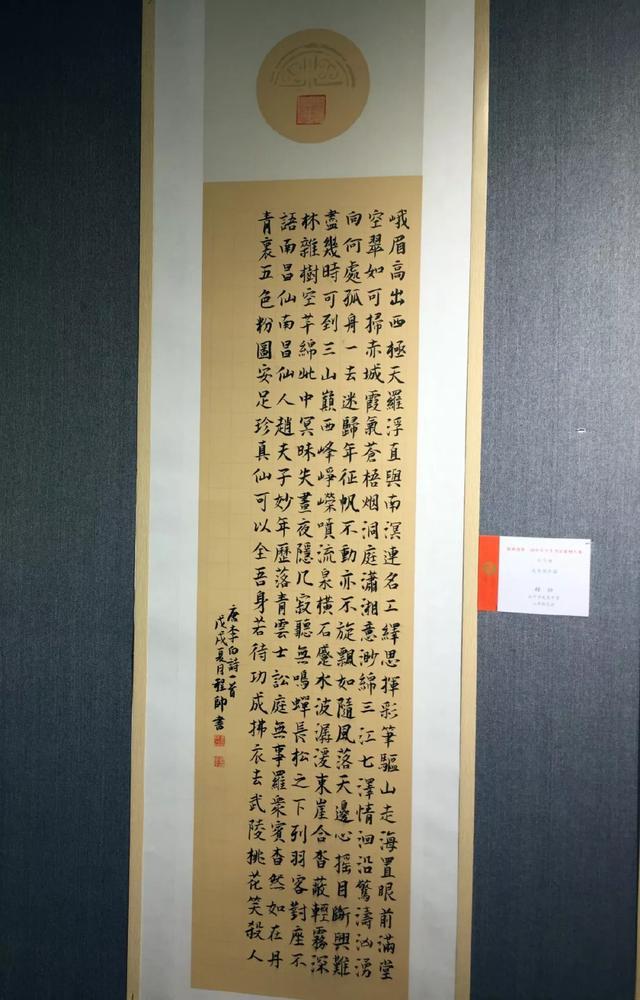 峨眉高出西極天羅浮直與南溟連名工繹思揮彩筆驅山走海置眼前滿堂
空翠如可掃赤城霞氣蒼梧烟洞庭瀟湘意渺綿三江七澤情洄沿驚濤洶湧
向何處孤身一去迷歸年征帆不動亦不旋飄如隨風落天邊心搖目斷興難
盡幾時可到三山巔西峰崢嶸噴流泉橫石蹙水波潺湲東崖合沓蔽輕霧深
林雜樹空芊綿此中冥昧失晝夜隱几寂聽無鳴蟬長松之下列羽客對座不
語南昌仙南昌仙人趙夫子妙年歷落青雲士訟庭無事羅衆賓杳然如在丹
青裏五色粉圖安足珍真仙可以全吾身若待功成拂衣去武陵桃花笑殺人
唐李白詩一首
戊戌夏月程帥書